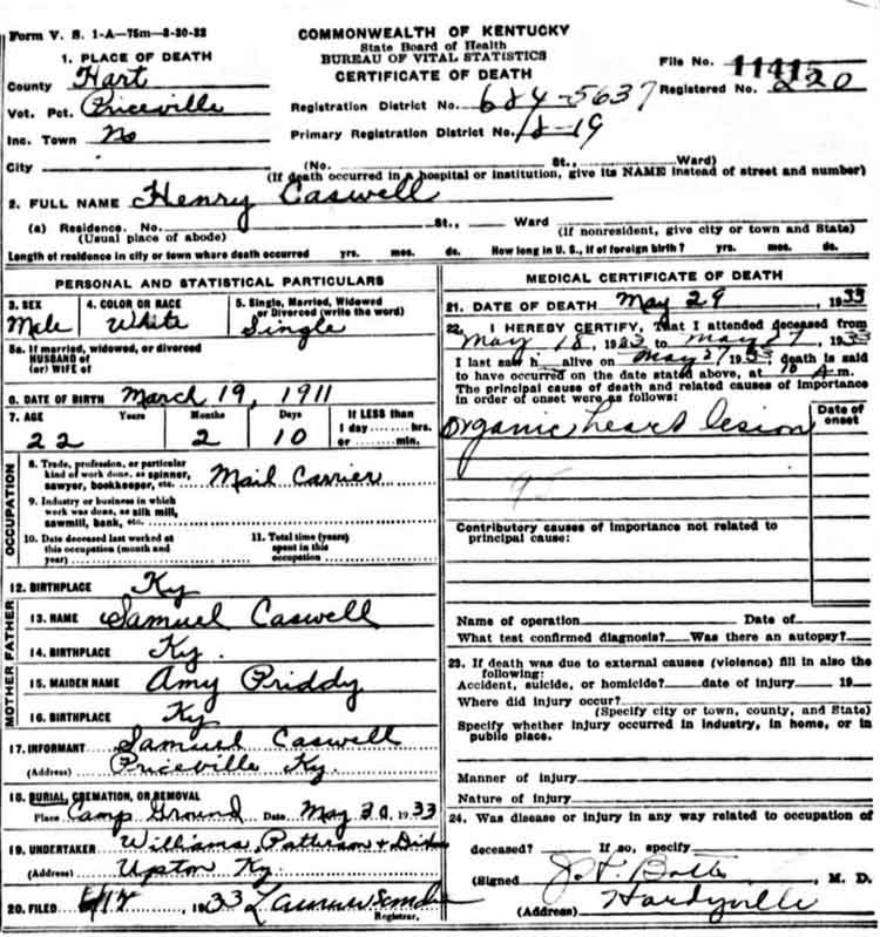 Form V. S. 1-A—75m—8-20-32
COMMONWEALTH OF KENTUCKY
State Board of Health
BUREAU OF VITAL STATISTICS
CERTIFICATE OF DEATH
File No. 11415
Registered No. 220
1. PLACE OF DEATH
County Hart
Vot. Pct. Priceville
Inc. Town No
City
Registration District No. 684-5637
Primary Registration District No.
(No. St., Ward)
(If death occurred in a hospital or institution, give its NAME instead of street and number)
2. FULL NAME Henry Caswell
(a) Residence. No. St., Ward
(Usual place of abode) (If nonresident, give city or town and State)
Length of residence in city or town where death occurred yrs. mos. ds. How long in U. S., if of foreign birth? yrs. mos. ds.
PERSONAL AND STATISTICAL PARTICULARS
3. SEX 4. COLOR OR RACE 5. Single, Married, Widowed
or Divorced (write the word)
Male White Single
5a. If married, widowed, or divorced
HUSBAND of
(or) WIFE of
6. DATE OF BIRTH March 19, 1911
7. AGE Years Months Days If LESS than
1 day ........ hrs.
22 2 10 or ........ min.
OCCUPATION
8. Trade, profession, or particular
kind of work done, as spinner,
sawyer, bookkeeper, etc. Mail Carrier
9. Industry or business in which
work was done, as silk mill,
sawmill, bank, etc.
10. Date deceased last worked at
this occupation (month and
year)
11. Total time (years)
spent in this
occupation
12. BIRTHPLACE Ky
FATHER
13. NAME Samuel Caswell
14. BIRTHPLACE Ky.
MOTHER
15. MAIDEN NAME Amy Priddy
16. BIRTHPLACE Ky
17. INFORMANT Samuel Caswell
(Address) Priceville Ky.
18. BURIAL, CREMATION, OR REMOVAL
Place Camp Ground Date May 30, 1933
19. UNDERTAKER Williams, Patterson +
(Address) Upton Ky.
20. FILED 1933
Registrar.
MEDICAL CERTIFICATE OF DEATH
21. DATE OF DEATH May 29, 1933
22. I HEREBY CERTIFY, That I attended deceased from
May 18, 1933 to May 27, 1933
I last saw h alive on May 27 1933, death is said
to have occurred on the date stated above, at 10 A m.
The principal cause of death and related causes of importance
in order of onset were as follows:
Date of
onset
Organic heart lesion
95
Contributory causes of importance not related to
principal cause:
Name of operation Date of
What test confirmed diagnosis? Was there an autopsy?
23. If death was due to external causes (violence) fill in also the
following:
Accident, suicide, or homicide? date of injury 19
Where did injury occur?
(Specify city or town, county, and State)
Specify whether injury occurred in industry, in home, or in
public place.
Manner of injury
Nature of injury
24. Was disease or injury in any way related to occupation of
deceased? If so, specify
(Signed , M. D.
(Address) Hardyville